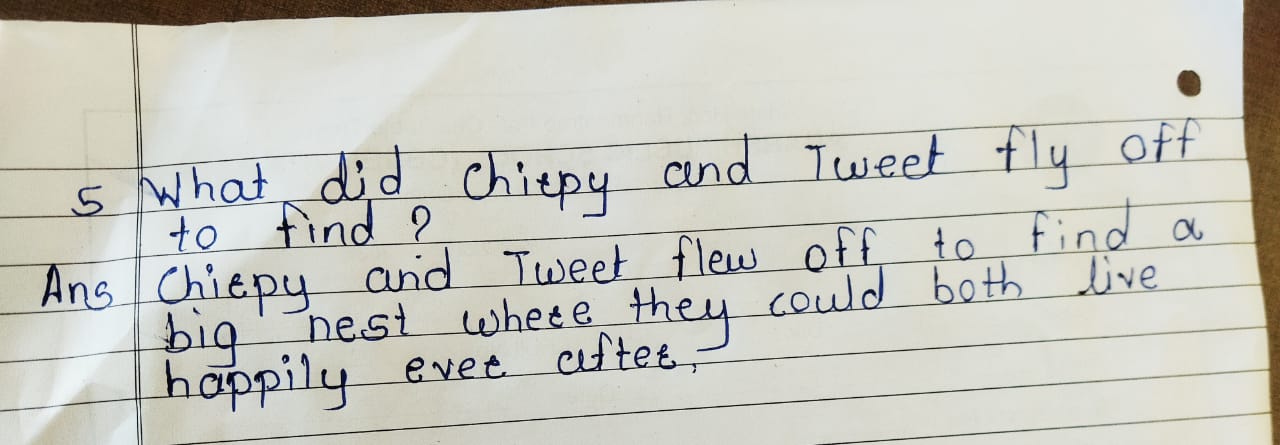 5 What did Chirpy and Tweet fly off
to find ?
Ans Chirpy and Tweet flew off to find a
big nest where they could both live
happily ever after.